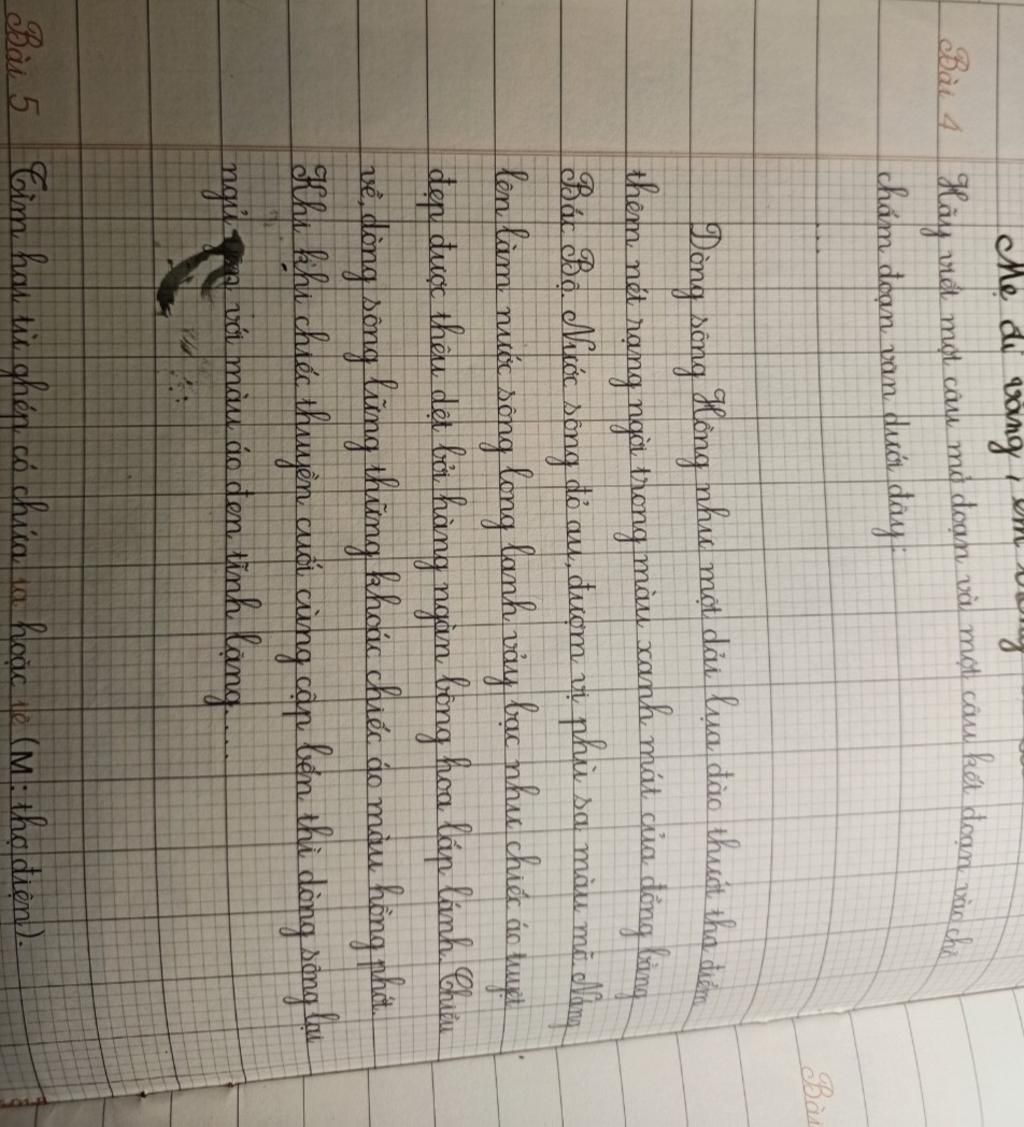 Mẹ đi vắng, em
Bài 4 Hãy viết một câu mở đoạn và một câu kết đoạn vào chỗ
chấm đoạn văn dưới đây:
...
Dòng sông Hồng như một dải lụa đào thướt tha điểm
thêm nét rạng ngời trong màu xanh mát của đồng bằng
Bắc Bộ. Nước sông đỏ au, đượm vị phù sa màu mỡ. Nắng
lên làm nước sông long lanh vảy bạc như chiếc áo tuyệt
đẹp được thêu dệt bởi hàng ngàn bông hoa lấp lánh. Chiều
về, dòng sông lững thững khoác chiếc áo màu hồng phớt.
Khi khi chiếc thuyền cuối cùng cập bến thì dòng sông lại
ngủ với màu áo đen tĩnh lặng....
Bài 5 Tìm hai từ ghép có chứa ưa hoặc iê (M: thợ điện).
Bài